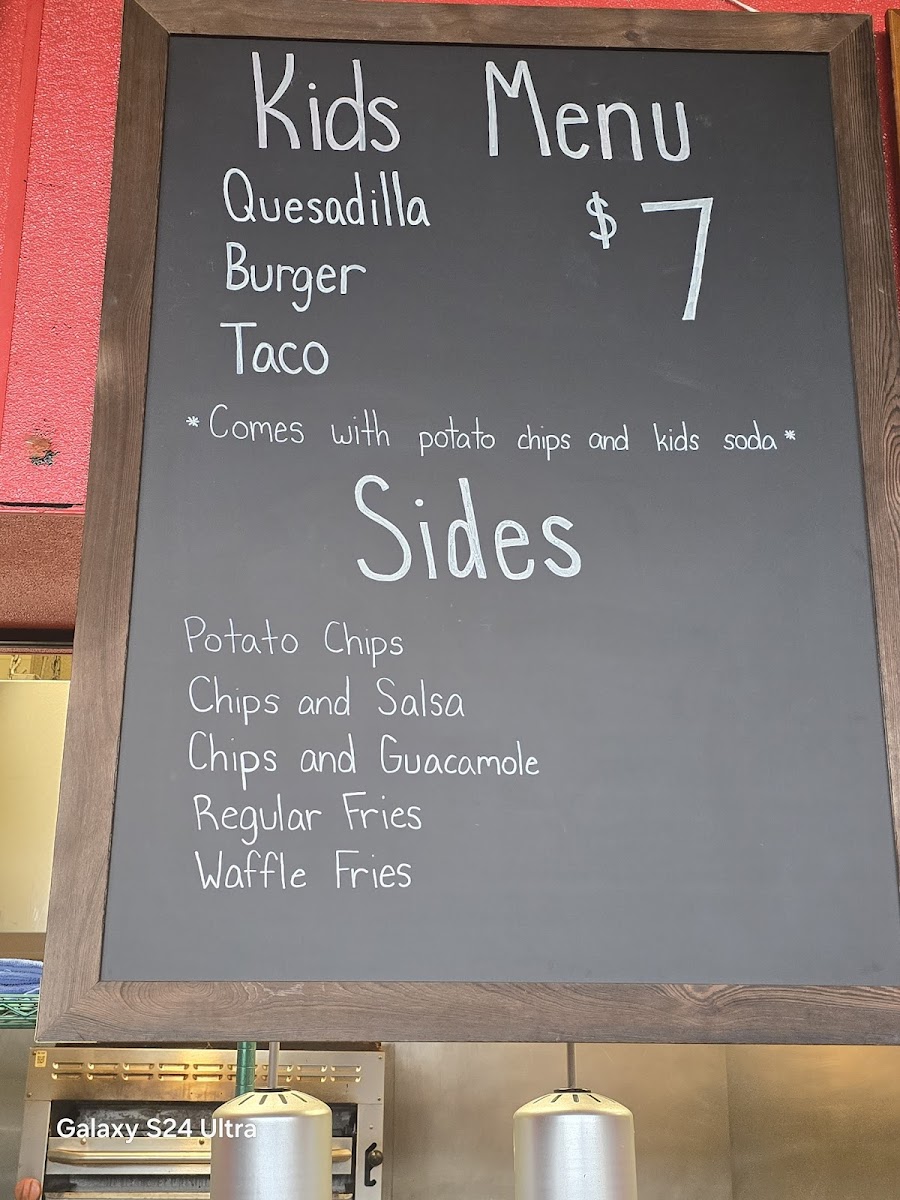 Kids Menu
Quesadilla
$7
Burger
Taco
*Comes with potato chips and kids soda*
Sides
Potato Chips
Chips and Salsa
Chips and Guacamole
Regular Fries
Waffle Fries
Galaxy S24 Ultra